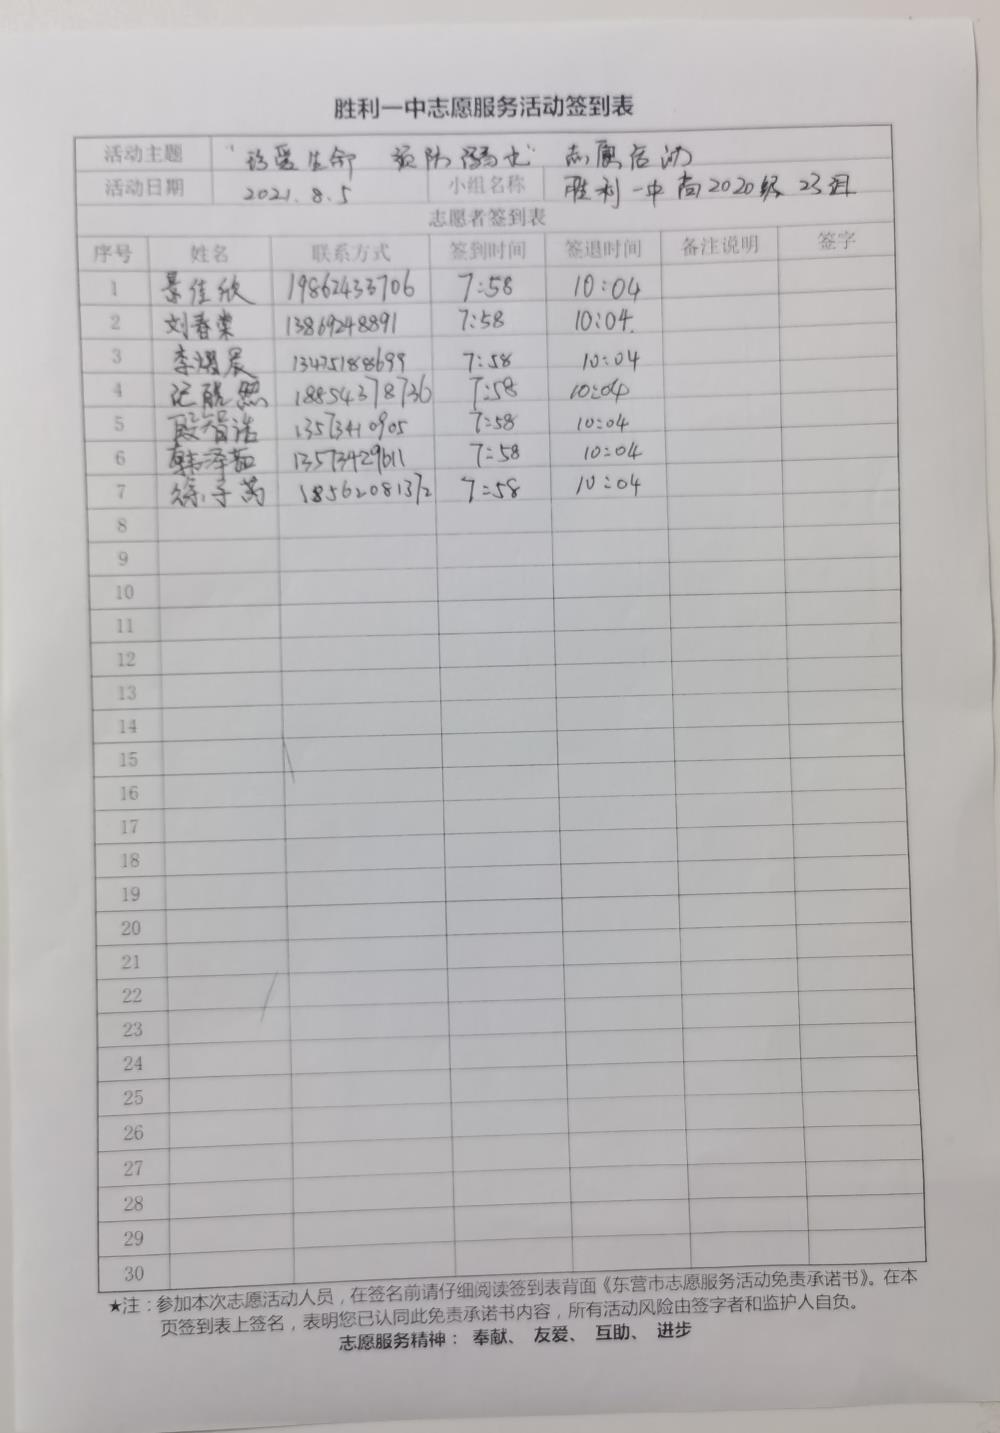 胜利一中志愿服务活动签到表
活动主题 "珍爱生命 预防溺水" 志愿活动
活动日期 2021.8.5 小组名称 胜利一中高2020级 23组
志愿者签到表
序号 姓名 联系方式 签到时间 签退时间 备注说明 签字
1 景佳欣 19862433706 7:58 10:04
2 刘春棠 13869248891 7:58 10:04.
3 李煜晨 13475188699 7:58 10:04
4 18854378736 7:58 10:04
5 殷智浩 13573410905 7:58 10:04
6 韩泽茹 13573429611 7:58 10:04
7 徐子茑 18562081372 7:58 10:04
8
9
10
11
12
13
14
15
16
17
18
19
20
21
22
23
24
25
26
27
28
29
30
★注：参加本次志愿活动人员，在签名前请仔细阅读签到表背面《东营市志愿服务活动免责承诺书》。在本
页签到表上签名，表明您已认同此免责承诺书内容，所有活动风险由签字者和监护人自负。
志愿服务精神： 奉献、 友爱、 互助、 进步